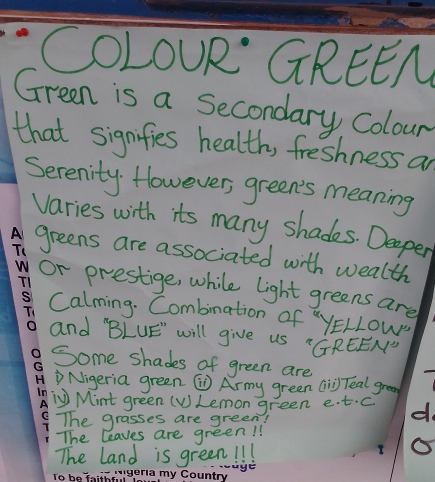 COLOUR GREEN
Green is a Secondary Colour
that signifies health, freshness an
Serenity. However, green's meaning
Varies with its many shades. Deeper
greens are associated with wealth
Or prestige, while light greens are
Calming. Combination of "YELLOW"
and "BLUE" will give us "GREEN"
Some shades of green are
i) Nigeria green (ii) Army green (iii) Teal green
iv) Mint green (v) Lemon green e.t.c
The grasses are green!
The leaves are green!!
The Land is green!!!
Nigeria my Country
To be faithful, loyal